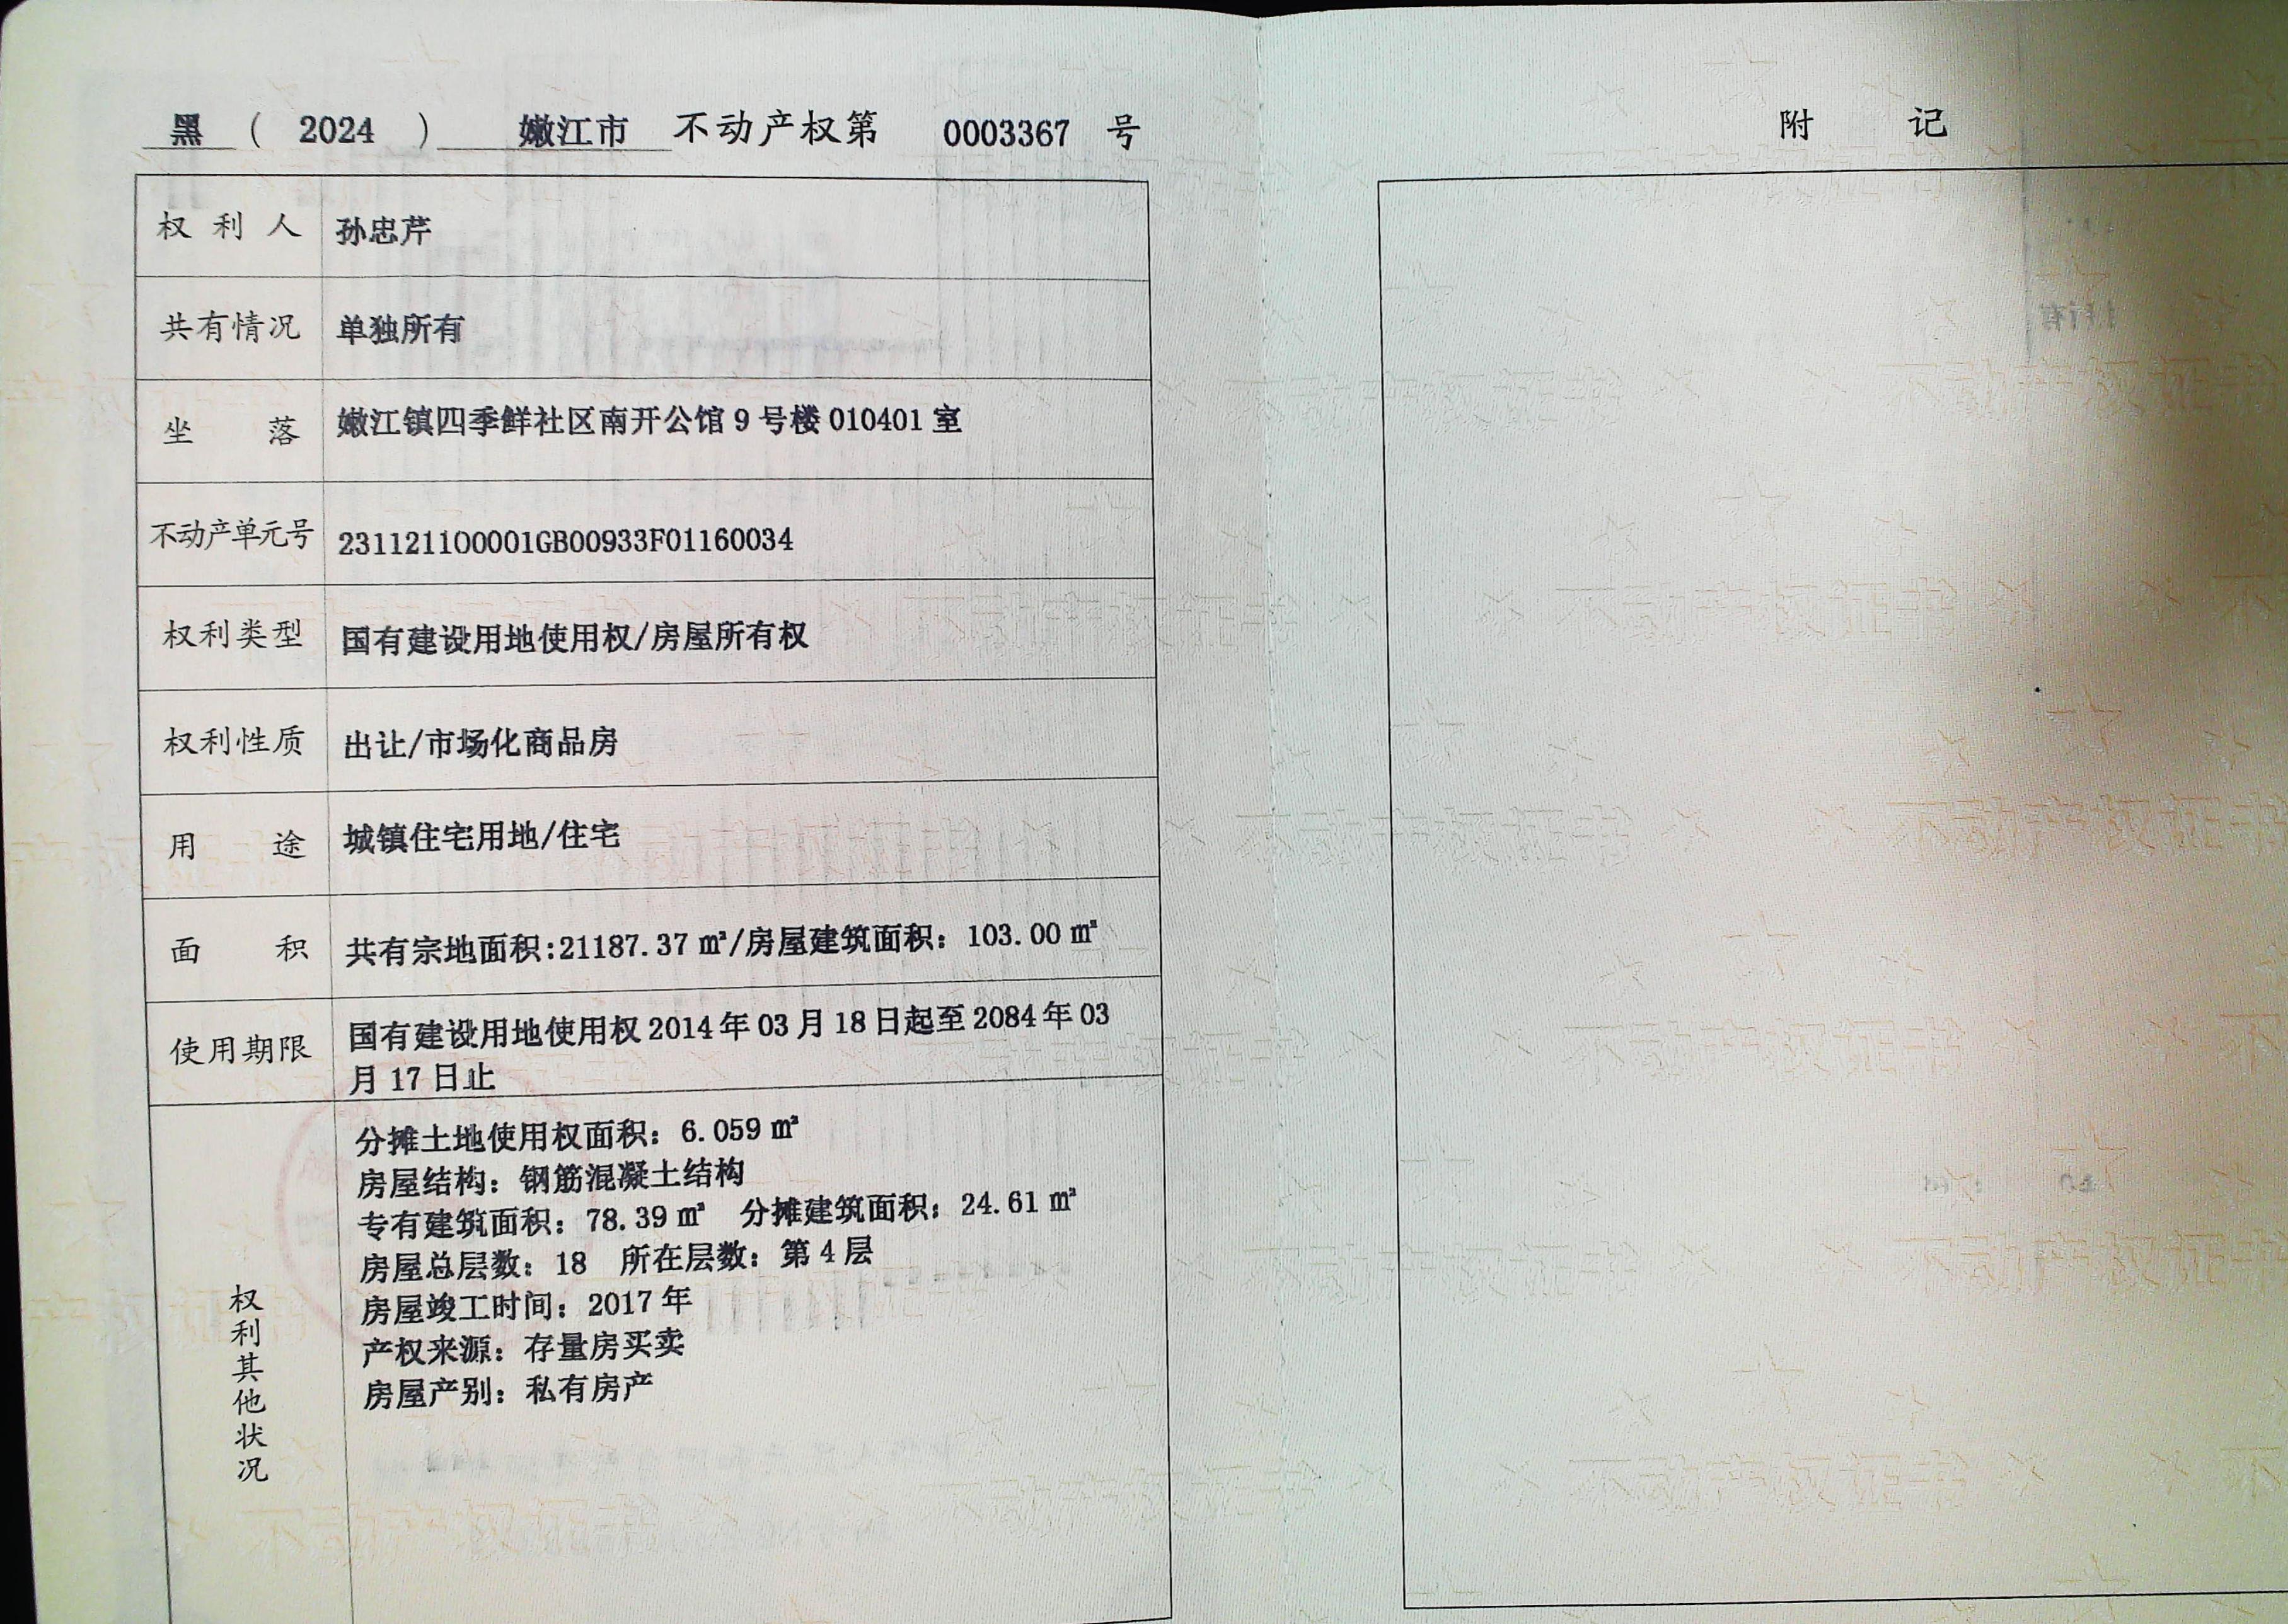 黑 ( 2024 ) 嫩江市 不动产权第 0003367 号
权利人 孙忠芹
共有情况 单独所有
坐落 嫩江镇四季鲜社区南开公馆 9 号楼 010401 室
不动产单元号 231121100001GB00933F01160034
权利类型 国有建设用地使用权/房屋所有权
权利性质 出让/市场化商品房
用途 城镇住宅用地/住宅
面积 共有宗地面积:21187.37 ㎡/房屋建筑面积: 103.00 ㎡
使用期限 国有建设用地使用权 2014 年 03 月 18 日起至 2084 年 03
月 17 日止
权利其他状况
分摊土地使用权面积: 6.059 ㎡
房屋结构: 钢筋混凝土结构
专有建筑面积: 78.39 ㎡ 分摊建筑面积: 24.61 ㎡
房屋总层数: 18 所在层数: 第 4 层
房屋竣工时间: 2017 年
产权来源: 存量房买卖
房屋产别: 私有房产
附记